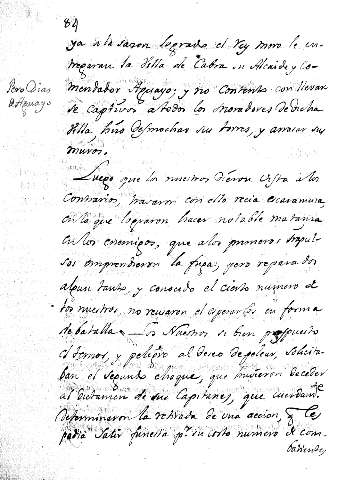 84
ya a la sazon logrado el Rey moro le en-
tregaran la Villa de Cabra su Alcaide y Co-
mendador Aguayo; y no contento con llevar-
se captivos a todos los moradores de dicha
Villa, hizo desmochar sus torres, y arrasar sus
muros.
Pero Dias
de Aguayo
Luego que los nuestros dieron vista a los
contrarios, travaron con ellos recia escaramuza
en la que lograron hacer notable matanza
en los enemigos, que a los primeros impul-
sos emprendieron la fuga; pero reparados
algun tanto, y conocido el cierto numero de
los nuestros, no reusaron el esperarlos en forma
de batalla. Los Nuestros si bien pospuesto
el temor, y peligro al deseo de pelear, solicita-
ban el segundo choque, que huvieron de ceder
al dictamen de sus Capitanes, que cuerdamte
determinaron la retirada de una accion, q le
podia salir funesta pr su corto numero de com-
batientes